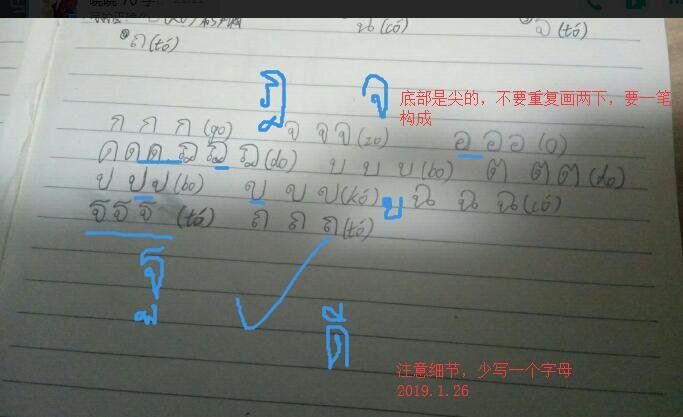 ฉ(có)
ถ(tó)
ฎ จ 底部是尖的，不要重复画两下，要一笔
构成
ก ก ก (go) จ จ จ (zo) อ อ อ (o)
ด ด ด ฎ ฎ ฎ (do) บ บ บ (bo) ต ต ต (do)
ป ป ป (bo) ข ข ข (kó) ข ฉ ฉ ฉ (có)
ฐ ฐ ฐ (tó) ถ ถ ถ (tó)
ฐ
ดี
注意细节，少写一个字母
2019.1.26